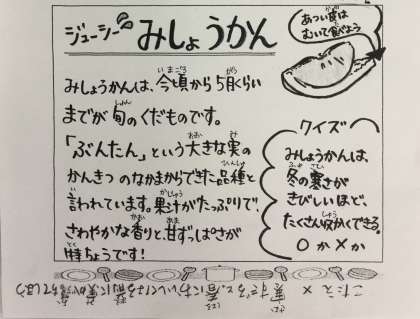 ジューシー みしょうかん
あつい皮は
むいて食べよう
みしょうかんは、今頃から5月くらい
までが旬のくだものです。
「ぶんたん」という大きな実の
かんきつのなかまからできた品種と
言われています。果汁がたっぷりで、
さわやかな香りと、甘ずっぱさが
特ちょうです！
クイズ
みしょうかんは、
冬の寒さが
きびしいほど、
たくさん収かくできる。
○か×か
こたえ ×